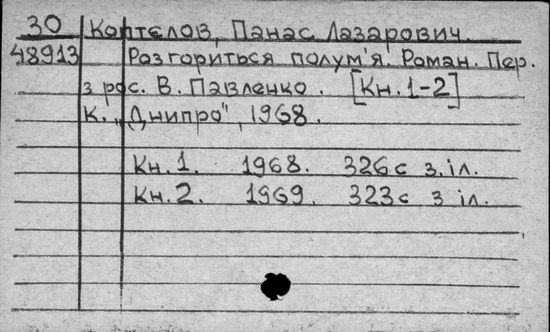 30 Коптєлов, Панас Лазарович.
48913 Розгориться полум'я. Роман. Пер.
з рос. В. Павленко. [Кн. 1-2]
К. „Днипро", 1968.
Кн. 1. 1968. 326 с з. іл.
Кн. 2. 1969. 323 с з іл.